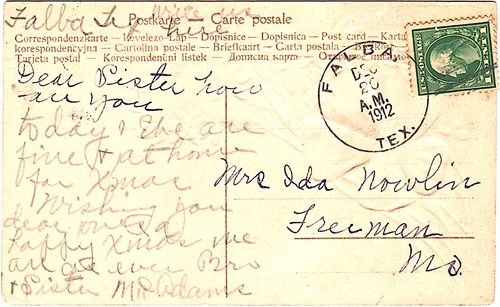 Falba Tex
write us
here
Postkarte — Carte postale
Correspondenzkarte — Levelezo-Lap — Dopisnice — Dopisnica — Post card — Karta
korespondencyjna — Cartolina postale — Briefkaart — Carta postala —
Tarjeta postal — Korespondenční listek — Дописна карта —
FALBA
DEC
26
A.M.
1912
TEX.
Dear Sister how
are you
today & Ebe are
fine & at home
for Xmas
Wishing you
dear ones a
Happy Xmas we
are as ever Bro
& Sister M R Adams
Mrs Ida Nowlin
Freeman
Mo.